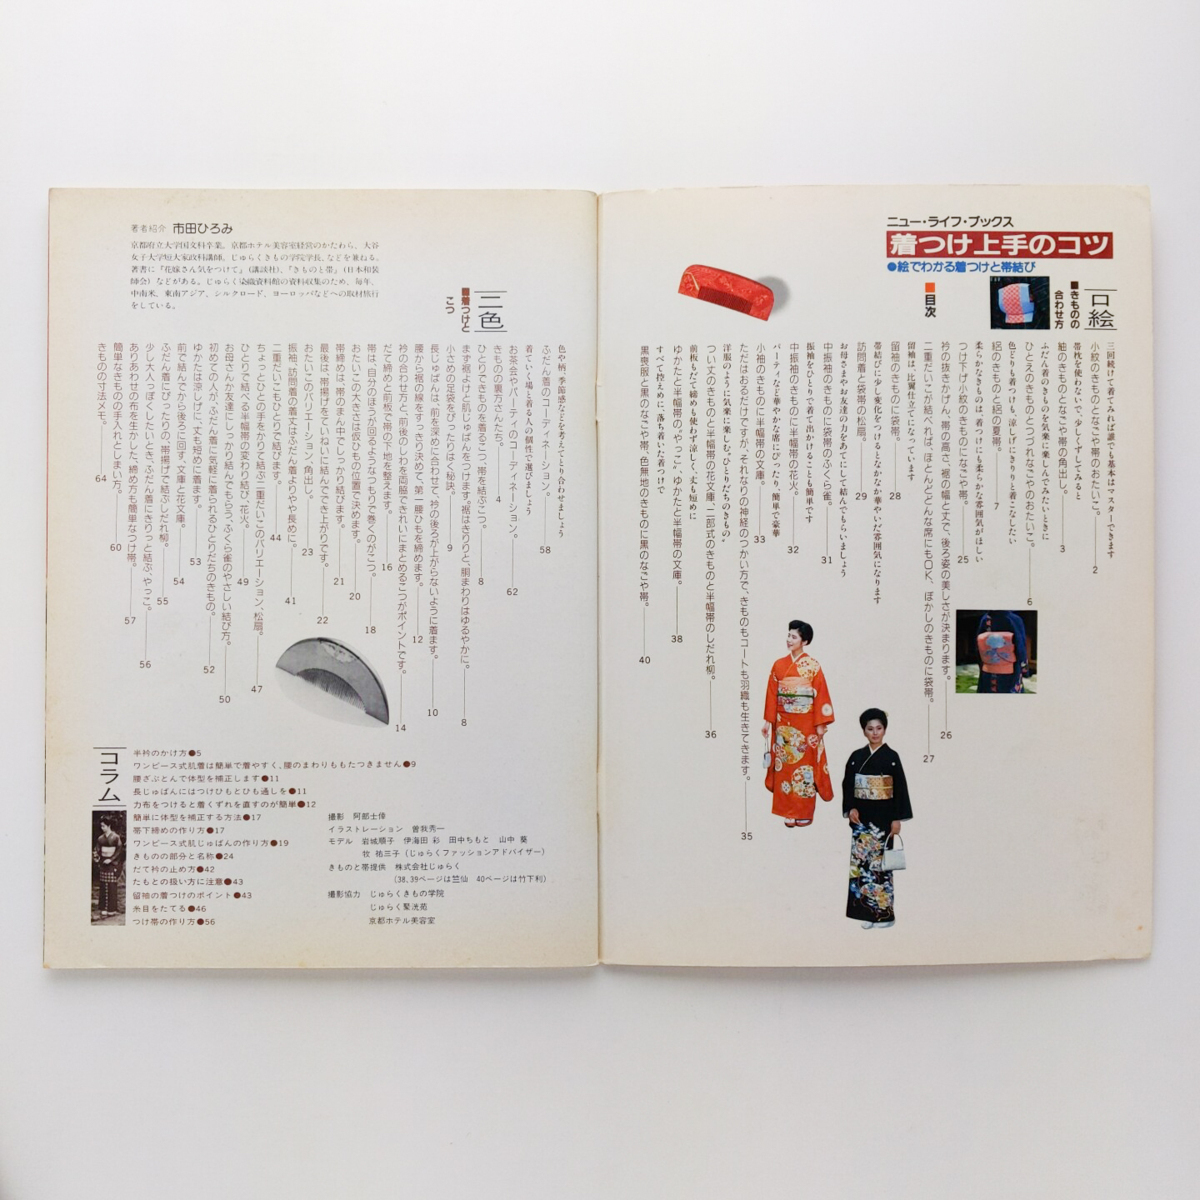 ニュー・ライフ・ブックス
着つけ上手のコツ
●絵でわかる着つけと帯結び
■目次
口絵
■きものの
合わせ方
三回続けて着てみれば誰でも基本はマスターできます
小紋のきものとなごや帯のおたいこ。 2
帯枕を使わないで、少しくずしてみると
紬のきものとなごや帯の角出し。 3
ふだん着のきもの を気楽に楽しんでみたいときに
ひとえのきものとつづれなごやのおたいこ。 6
色どりも着つけも、涼しげにきりりと着こなしたい
絽のきものと絽の夏帯。 7
柔らかなきものは、着つけにも柔らかな雰囲気がほしい
つけ下げ小紋のきものになごや帯。 25
衿の抜きかげん、帯の高さ、裾の幅と丈で、後ろ姿の美しさが決まります。 26
二重だいこが結べれば、ほとんどどんな席にもOK、ぼかしのきものに袋帯。 27
留袖は、比翼仕立てになっています
留袖のきものに袋帯。 28
帯結びに少し変化をつけるとなかなか華やいだ雰囲気になります
訪問着と袋帯の松扇。 29
お母さまやお友達の力をあてにして結んでもらいましょう
中振袖のきものに袋帯のふくら雀。 31
振袖をひとりで着て出かけることも簡単です
中振袖のきものに半幅帯の花火。 32
パーティなど華やかな席にぴったり、簡単で豪華
小袖のきものに半幅帯の文庫。 33
ただはおるだけですが、それなりの神経のつかい方で、きものもコートも羽織も生きてきます。 35
洋服のように気楽に楽しむ。ひとりだちのきもの。
つい丈のきものと半幅帯の花文庫、二部式のきものと半幅帯のしだれ柳。 36
前板もだて締めも使わず涼しく、丈も短めに
ゆかたと半幅帯の“やっこ”、ゆかたと半幅帯の文庫。 38
すべて控えめに、落ち着いた着つけで
黒喪服と黒のなごや帯、色無地のきものに黒のなごや帯。 40
著者紹介 市田ひろみ
京都府立大学国文科卒業。京都ホテル美容室経営のかたわら、大谷
女子大学短大家政科講師、じゅらくきもの学院学長、などを兼ねる。
著書に『花嫁さん気をつけて』(講談社)、『きものと帯』(日本和装
師会)などがある。じゅらく染織資料館の資料収集のため、毎年、
中南米、東南アジア、シルクロード、ヨーロッパなどへの取材旅行
をしている。
二色
■着つけと
こつ
色や柄、季節感などを考えてとり合わせましょう
ふだん着のコーディネーション。 58
着ていく場と着る人の個性で選びましょう
お茶会やパーティのコーディネーション。 62
きものの裏方さんたち。 4
ひとりできものを着るこつ、帯を結ぶこつ。 8
まず裾よけと肌じゅばんをつけます。裾はきりりと、胴まわりはゆるやかに。 8
小さめの足袋をぴったりはく秘訣。 9
長じゅばんは、前を深めに合わせて、衿の後ろが上がらないように着ます。 10
腰から裾の線をすっきり決めて、第一腰ひもを締めます。 12
衿の合わせ方と、前後のしわを両脇できれいにまとめるこつがポイントです。 14
だて締めと前板で帯の下地を整えます。 16
帯は、自分のほうが回るようなつもりで巻くのがこつ。 18
おたいこの大きさは仮ひもの位置で決めます。 20
帯締めは、帯のまん中でしっかり結びます。 21
最後は、帯揚げをていねいに結んででき上がりです。 22
おたいこのバリエーション、角出し。 23
振袖、訪問着の着丈はふだん着よりやや長めに。 41
二重だいこもひとりで結びます。 44
ちょっとひとの手をかりて結ぶ二重だいこのバリエーション、松扇。 47
ひとりで結べる半幅帯の変わり結び、花火。 49
お母さんか友達にしっかり結んでもらう、ふくら雀のやさしい結び方。 50
初めての人が、ふだん着に気軽に着られるひとりだちのきもの。 52
ゆかたは涼しげに、丈も短めに着ます。 53
前で結んでから後ろに回す、文庫と花文庫。 54
ふだん着にぴったりの、帯揚げで結ぶしだれ柳。 55
少し大人っぽくしたいとき、ふだん着にきりっと結ぶ、やっこ。 56
ありあわせの布を生かした、締め方も簡単なつけ帯。 57
簡単なきものの手入れとしまい方。 60
きものの寸法メモ。 64
コラム
半衿のかけ方●5
ワンピース式肌着は簡単で着やすく、腰のまわりももたつきません●9
腰ざぶとんで体型を補正します●11
長じゅばんにはつけひもとひも通しを●11
力布をつけると着くずれを直すのが簡単●12
簡単に体型を補正する方法●17
帯下締めの作り方●17
ワンピース式肌じゅばんの作り方●19
きものの部分と名称●24
だて衿の止め方●42
たもとの扱い方に注意●43
留袖の着つけのポイント●43
糸目をたてる●46
つけ帯の作り方●56
撮影 阿部士倖
イラストレーション 曽我秀一
モデル 岩城順子 伊海田 彩 田中ちもと 山中 葵
牧 祐三子(じゅらくファッションアドバイザー)
きものと帯提供 株式会社じゅらく
(38、39ページは竺仙 40ページは竹下利)
撮影協力 じゅらくきもの学院
じゅらく聚洸苑
京都ホテル美容室